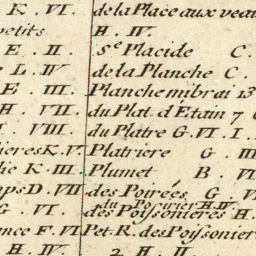 K. VI. de la Place aux vea
petits H. IV.
E. II. Se Placide C.
L. IV de la Planche C.
E. III. Planche mibrai 13
H. VII. du Plat d'Etain 7
VIII. du Platre G. VI. I
ieres K. V. Platriere G. III
K. III. Plumet B. VI
D. VII des Poirées G. V
du Poirier H. IV
G. VI. des Poissonieres H.
ance F. VI Pet. R. des Poissonier
H. IV. 2 H. II